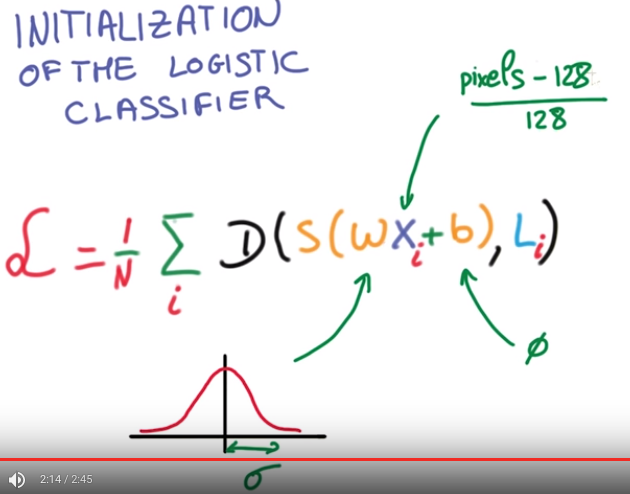 INITIALIZATION
OF THE LOGISTIC
CLASSIFIER
pixels - 128
128
ℒ = 1/N Σ_i D(S(WX_i + b), L_i)
∅
σ
2:14 / 2:45